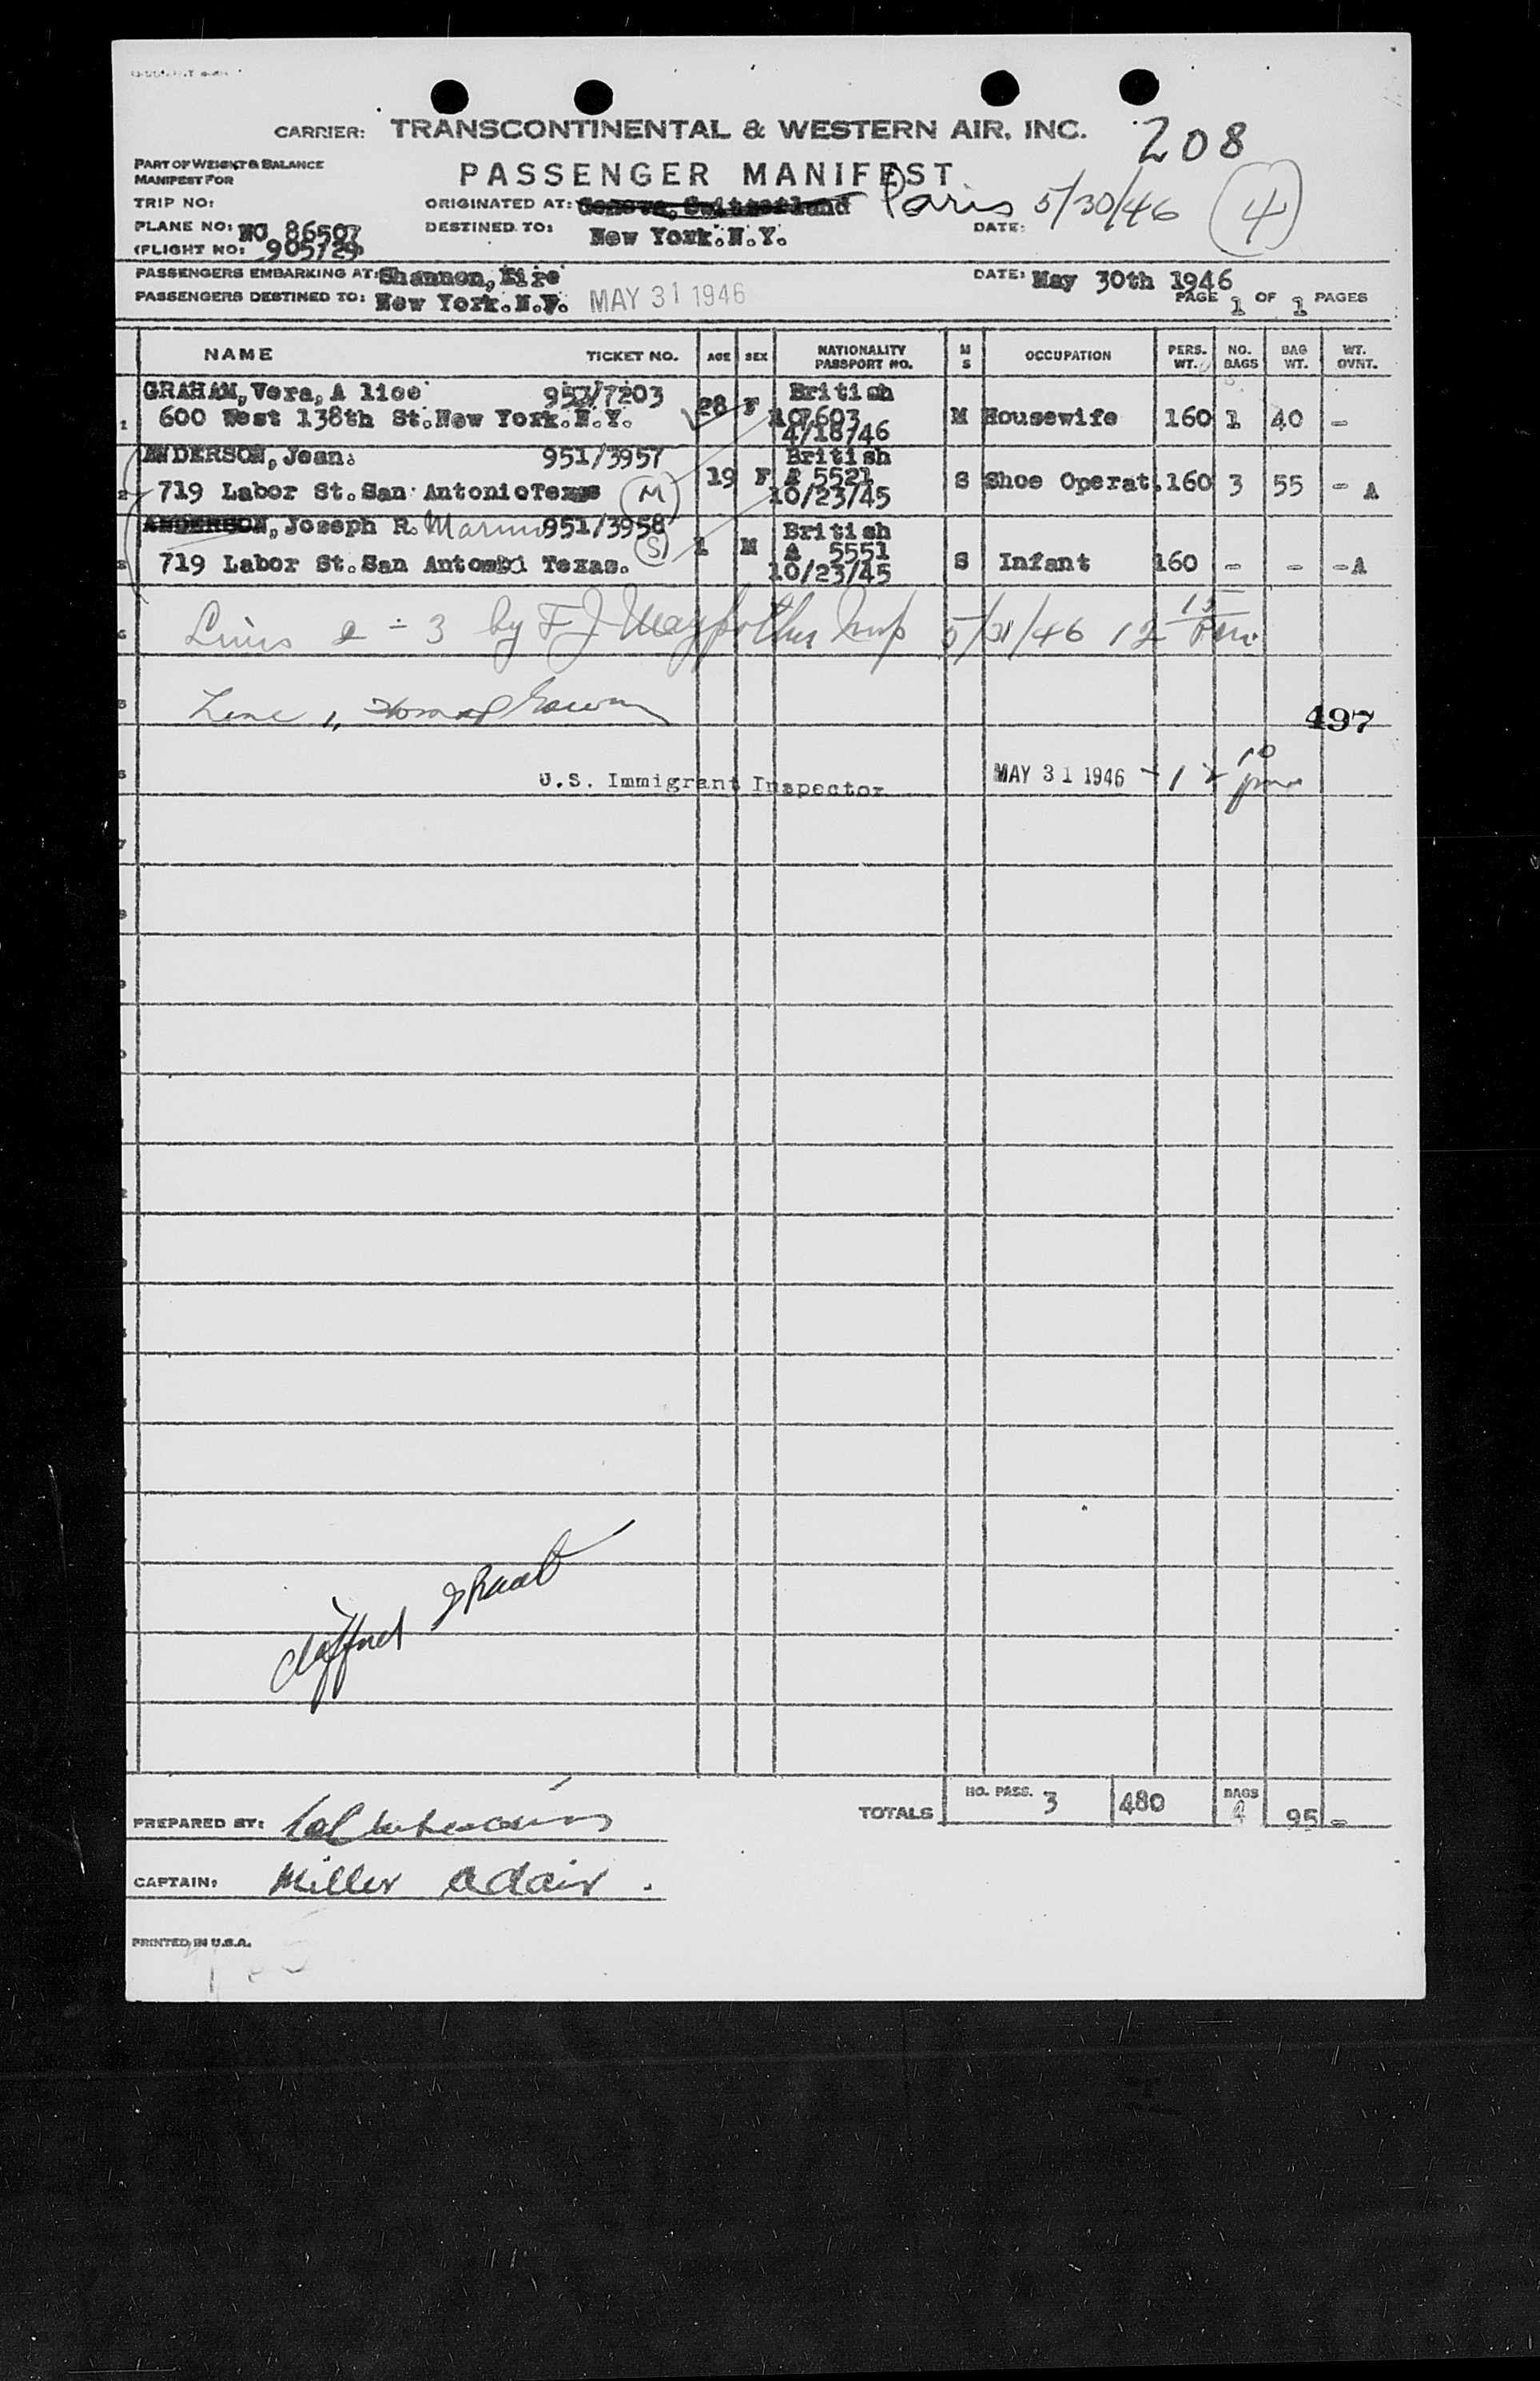 CARRIER: TRANSCONTINENTAL & WESTERN AIR, INC.
208
PART OF WEIGHT & BALANCE
MANIFEST FOR
PASSENGER MANIFEST
TRIP NO:
ORIGINATED AT: Geneva, Switzerland Paris 5/30/46 (4)
PLANE NO: NC 86507
DESTINED TO: New York.N.Y.
DATE:
(FLIGHT NO: 905/29)
PASSENGERS EMBARKING AT: Shannon, Eire
DATE: May 30th 1946
PASSENGERS DESTINED TO: New York.N.Y. MAY 31 1946
PAGE 1 OF 1 PAGES
NAME TICKET NO. AGE SEX NATIONALITY PASSPORT NO. M S OCCUPATION PERS. WT. NO. BAGS BAG WT. WT. OVNT.
GRAHAM, Vera, A lice 957/7203 28 F British
1 600 West 138th St. New York.N.Y. 107603 M Housewife 160 1 40 -
4/18/46
ANDERSON, Jean. 951/3957 19 F British
2 719 Labor St. San Antonio Texas (M) A 5521 S Shoe Operat. 160 3 55 - A
10/23/45
ANDERSON, Joseph R. 951/3958 1 M British
3 719 Labor St. San Antonio Texas. (S) A 5551 S Infant 160 - - - A
10/23/45
Lines 2 - 3 by F J 5/31/46 12 15 Pm.
Line 1,
497
U.S. Immigrant Inspector MAY 31 1946 - 12 10 pm
TOTALS NO. PASS. 3 480 BAGS 4 95 -
PREPARED BY:
CAPTAIN: Miller Adair.
PRINTED IN U.S.A.